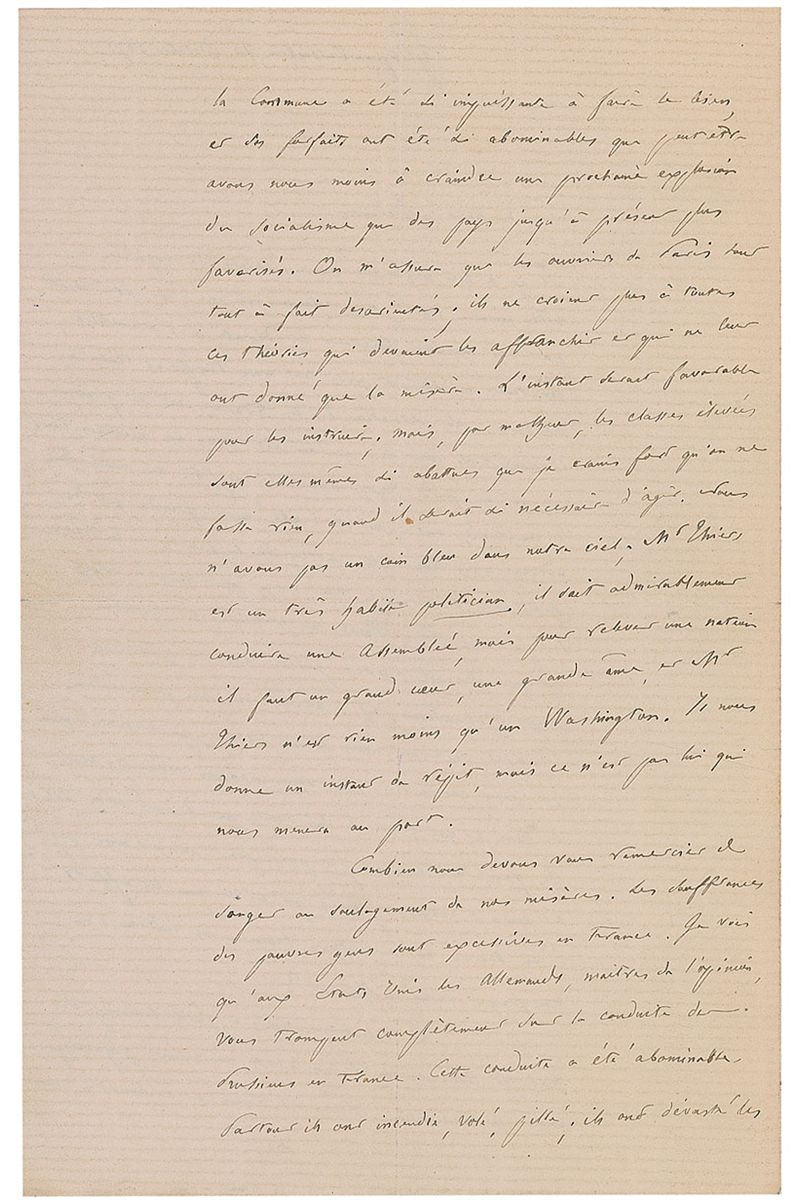 la Commune a été si impuissante à faire le bien,
et ses forfaits ont été si abominables que peut être
avons nous moins à craindre une prochaine explosion
du socialisme que des pays jusqu'à présent plus
favorisés. On m'assure que les ouvriers de Paris sont
tout à fait désorientés ; ils ne croient plus à toutes
ces théories qui devaient les affranchir et qui ne leur
ont donné que la misère. L'instant serait favorable
pour les instruire ; mais, par malheur, les classes élevées
sont elles mêmes si abattues que je crains fort qu'on ne
fasse rien, quand il serait si nécessaire d'agir. Nous
n'avons pas un coin bleu dans notre ciel. Mr Thiers
est un très habile politician, il sait admirablement
conduire une Assemblée, mais pour relever une nation
il faut un grand cœur, une grande âme, et Mr
Thiers n'est rien moins qu'un Washington. Il nous
donne un instant de répit, mais ce n'est pas lui qui
nous mènera au port.
Combien nous devons vous remercier de
songer au soulagement de nos misères. Les souffrances
des pauvres gens sont excessives en France. Je vois
qu'aux Etats Unis les Allemands, maîtres de l'opinion,
vous trompent complètement sur la conduite des
Prussiens en France. Cette conduite a été abominable.
Partout ils ont incendié, volé, pillé ; ils ont dévasté les